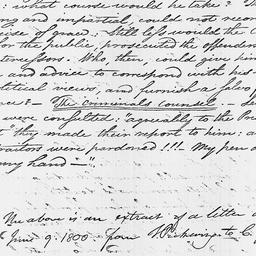 : what course would he take? Th
ng and impartial, could not recon
cise of grace: Still less would the C
for the public, prosecuted the offenders
tercessors. Who, then, could give him
and advice to correspond with his
olitical views, and furnish a salvo
nce? — The criminals counsel. —
were consulted: "agreeably to the
" they made their report to him: a
traitors were pardoned!!! My pen
my hand —"
The above is an extract of a letter d
June 9. 1800. from T. Pickering to C.